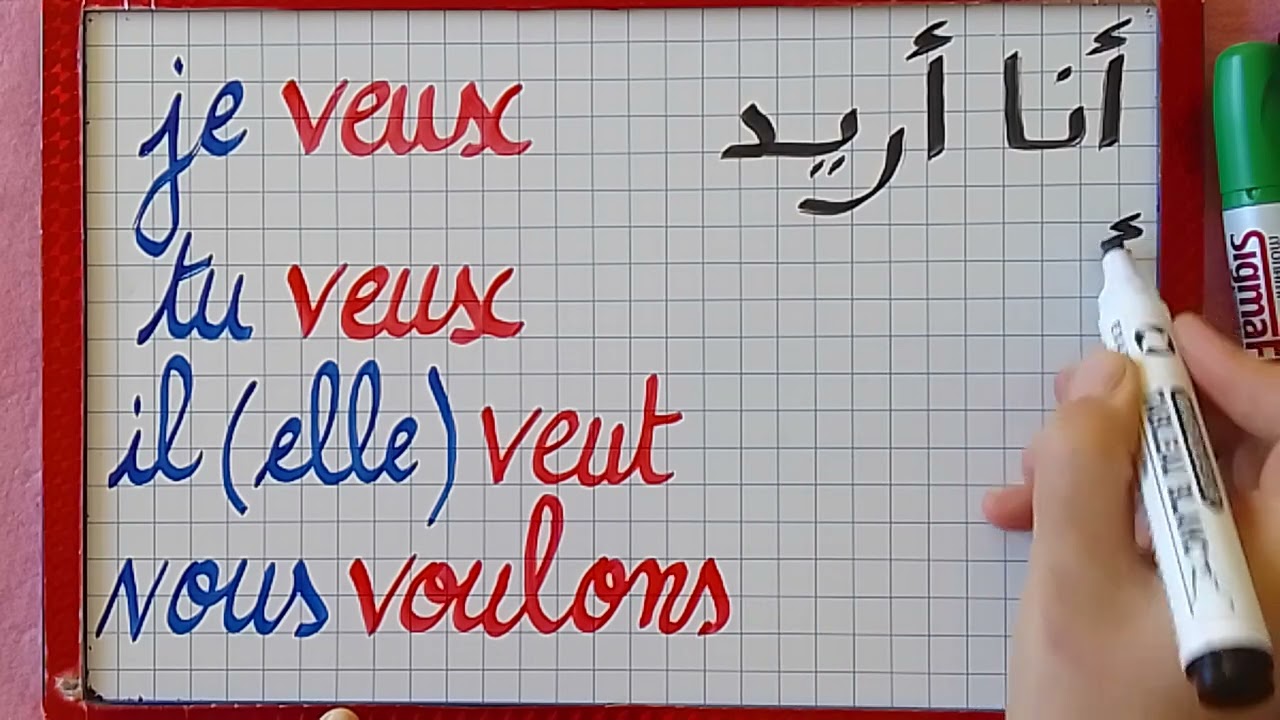 je veux
أنا أريد
tu veux
أ
il (elle) veut
nous voulons
Sigma
TABLEAU BLANC